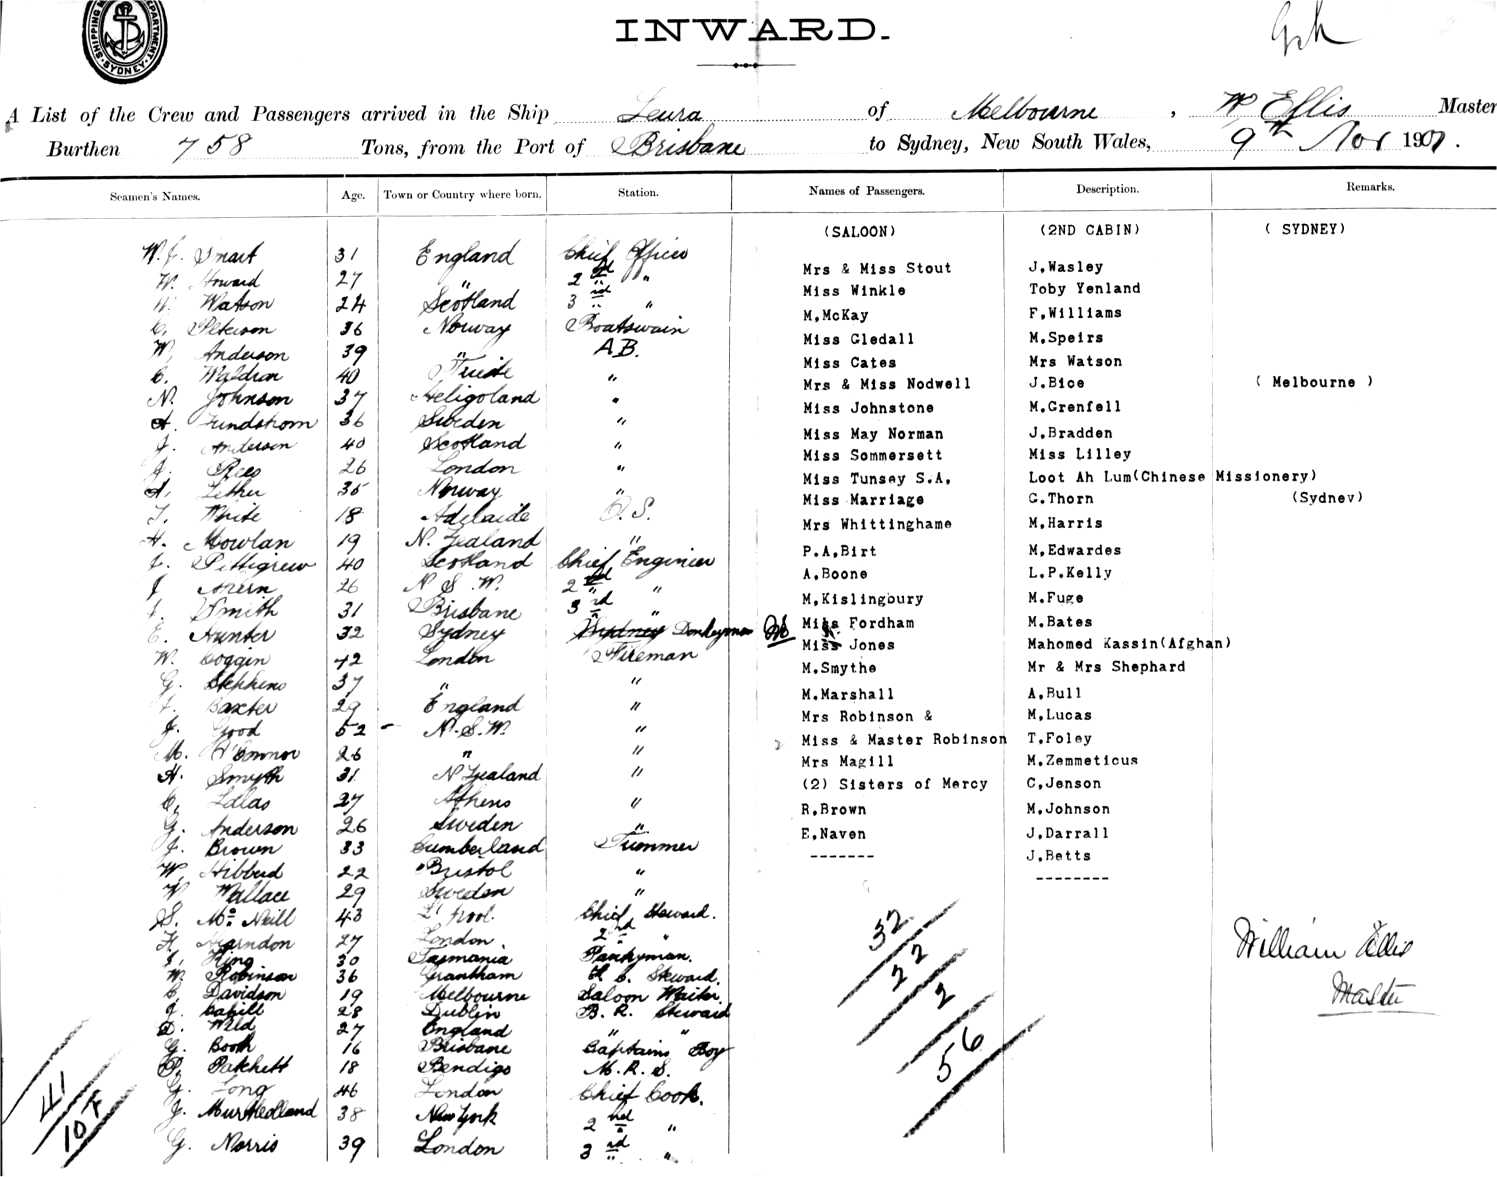 SHIPPING DEPARTMENT. SYDNEY.
INWARD.
A List of the Crew and Passengers arrived in the Ship Leura of Melbourne, W Ellis Master
Burthen 758 Tons, from the Port of Brisbane to Sydney, New South Wales, 9th Nov 1901.
Seamen's Names. Age. Town or Country where born. Station. Names of Passengers. Description. Remarks.
(SALOON) (2ND CABIN) ( SYDNEY)
W. J. Smart 31 England Chief Officer
Mrs & Miss Stout J.Wasley
W. Howard 27 " 2nd "
Miss Winkle Toby Yenland
Watson 24 Scotland 3rd "
M.McKay F.Williams
C. Peterson 36 Norway Boatswain
Miss Gledall M.Speirs
W. Anderson 39 " A.B.
Miss Cates Mrs Watson
C. Waldran 40 "
Mrs & Miss Nodwell J.Bice ( Melbourne )
N. Johnson 37 Heligoland "
Miss Johnstone M.Grenfell
A. Lundstrom 36 Sweden "
Miss May Norman J.Bradden
J. Anderson 40 Scotland "
Miss Sommersett Miss Lilley
J. Rees 26 London "
Miss Tunsey S.A. Loot Ah Lum(Chinese Missionery)
A. Lether 35 Norway "
Miss Marriage G.Thorn (Sydney)
T. White 18 Adelaide O.S.
Mrs Whittinghame M.Harris
H. Mowlan 19 N. Zealand "
P.A.Birt M.Edwardes
J. Pettigrew 40 Scotland Chief Engineer
A.Boone L.P.Kelly
J. Ahern 26 N.S.W. 2nd "
M.Kislingbury M.Fuge
Smith 31 Brisbane 3rd "
Miss Fordham M.Bates
E. Hunter 32 Sydney Sydney Donkeyman
Miss Jones Mahomed Kassin(Afghan)
W. Coggin 42 London Fireman
M.Smythe Mr & Mrs Shephard
G. Stephens 37 " "
M.Marshall A.Bull
Baxter 29 England "
Mrs Robinson & M.Lucas
J. Good 52 - N.S.W. "
Miss & Master Robinson T.Foley
M. O'Connor 26 " "
Mrs Magill M.Zemmeticus
H. Smyth 31 N Zealand "
(2) Sisters of Mercy C.Jenson
C. 27 Athens "
R.Brown M.Johnson
G. Anderson 26 Sweden "
E.Naven J.Darrall
J. Brown 33 Cumberland Trimmer
------- J.Betts
W. Hibberd 22 Bristol "
--------
W Wallace 29 Sweden "
S. McNeill 43 L'pool. Chief Steward.
27 London. 2nd "
King 30 Tasmania Pantryman.
W. Robinson 36 Grantham Steward.
C. Davidson 19 Melbourne Saloon Waiter
J. Cahill 28 Dublin B. R. Steward
D. Wild 27 England " "
G. Booth 16 Brisbane Captains Boy
P. Patchett 18 Bendigo M.R.S.
G. Long 46 London Chief Cook.
J. Murtledland 38 New York 2nd "
G. Norris 39 London 3rd "
32
22
2
56
41
10 F
William Ellis
Master